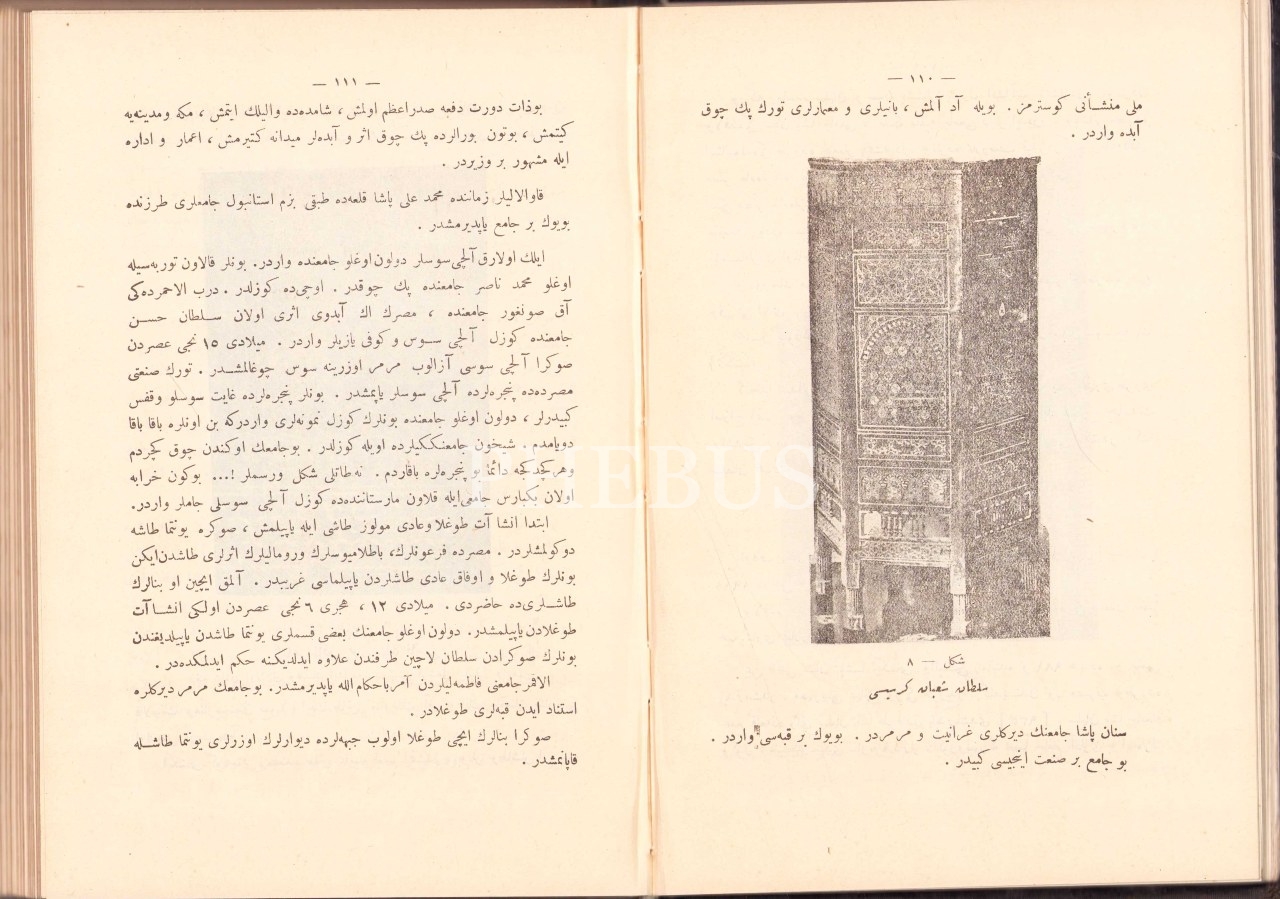 — ١١٠ —
ملى منشــأنى كوسترمز . بويله آد آلمش ، بانيلرى و معمارلرى تورك پك چوق
آبده واردر .
شكل — ٨
سلطان شعبان كرسيسى
سنان پاشا جامعنك ديركلرى غرانيت و مرمردر . بويوك بر قبه‌سى واردر .
بو جامع بر صنعت اينجيسى كبيدر .
— ١١١ —
بوذات دورت دفعه صدراعظم اولمش ، شامده‌ده واليلك ايتمش ، مكه ومدينه‌يه
كيتمش ، بوتون بورالرده پك چوق اثر و آبده‌لر ميدانه كتيرمش ، اعمار و اداره
ايله مشهور بر وزيردر .
قاوالاليلر زماننده محمد على پاشا قلعه‌ده طبقى بزم استانبول جامعلرى طرزنده
بويوك بر جامع ياپديرمشدر .
ايلك اولارق آلچى‌سوسلر دولون اوغلو جامعنده واردر. بونلر قالاون توربه‌سيله
اوغلو محمد ناصر جامعنده پك چوقدر . اوچى‌ده كوزلدر . درب الاحمرده‌كى
آق صونغور جامعنده ، مصرك اك آبدوى اثرى اولان ســلطان حســن
جامعنده كوزل آلچى ســوس و كوفى يازيلر واردر . ميلادى ١٥ نجى عصردن
صوكرا آلچى سوسى آزالوب مرمر اوزرينه سوس چوغالمشــدر . تورك صنعتى
مصرده‌ده پنجره‌لرده آلچى سوسلر ياپمشدر . بونلر پنجره‌لرده غايت سوسلو وقفس
كبيدرلر ، دولون اوغلو جامعنده بونلرك كوزل نمونه‌لرى واردركه بن اونلره باقا باقا
دويامدم . شيخون جامعنككيلرده اويله كوزلدر . بوجامعك اوكندن چوق كچردم
وهر كچدكجه دائما بو پنجره‌لره باقاردم . نه‌طاتلى شكل ورسملر !... بوكون خرابه
اولان بكبارس جامعى‌ايله قلاون مارستاننده‌ده كوزل آلچى سوسلى جاملر واردر.
ابتدا انشا آت طوغلا وعادى مولوز طاشى ايله ياپيلمش ، صوكره يونتما طاشه
دوكولمشلردر . مصرده فرعونلرك، باطلاميوسلرك ورومالیلرك اثرلرى طاشدن‌ايكن
بونلرك طوغلا و اوفاق عادى طاشلردن ياپيلماسى غريبدر . آلمق ايچين او بنالرك
طاشــلرى‌ده حاضردى . ميلادى ١٢ ، هجرى ٦ نجى عصردن اولكى انشــا آت
طوغلادن ياپيلمشدر. دولون اوغلو جامعنك بعضى قسملرى يونتما طاشدن ياپيلديغندن
بونلرك صوكرادن سلطان لاچين طرفندن علاوه ايدلديكنه حكم ايدلمكده‌در .
الاقمر جامعنى فاطمه‌ليلردن آمر باحكام الله ياپديرمشدر. بوجامعك مرمر ديركلره
استناد ايدن قبه‌لرى طوغلادر .
صوكرا بنالرك ايچى طوغلا اولوب جبهه‌لرده ديوارلرك اوزرلرى يونتما طاشــله
قاپانمشدر .
PHEBUS